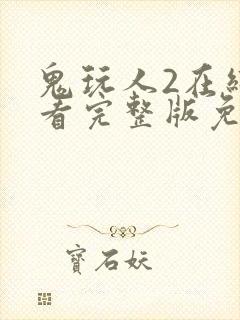 鬼玩人2在线
看完整版免
寳石妖